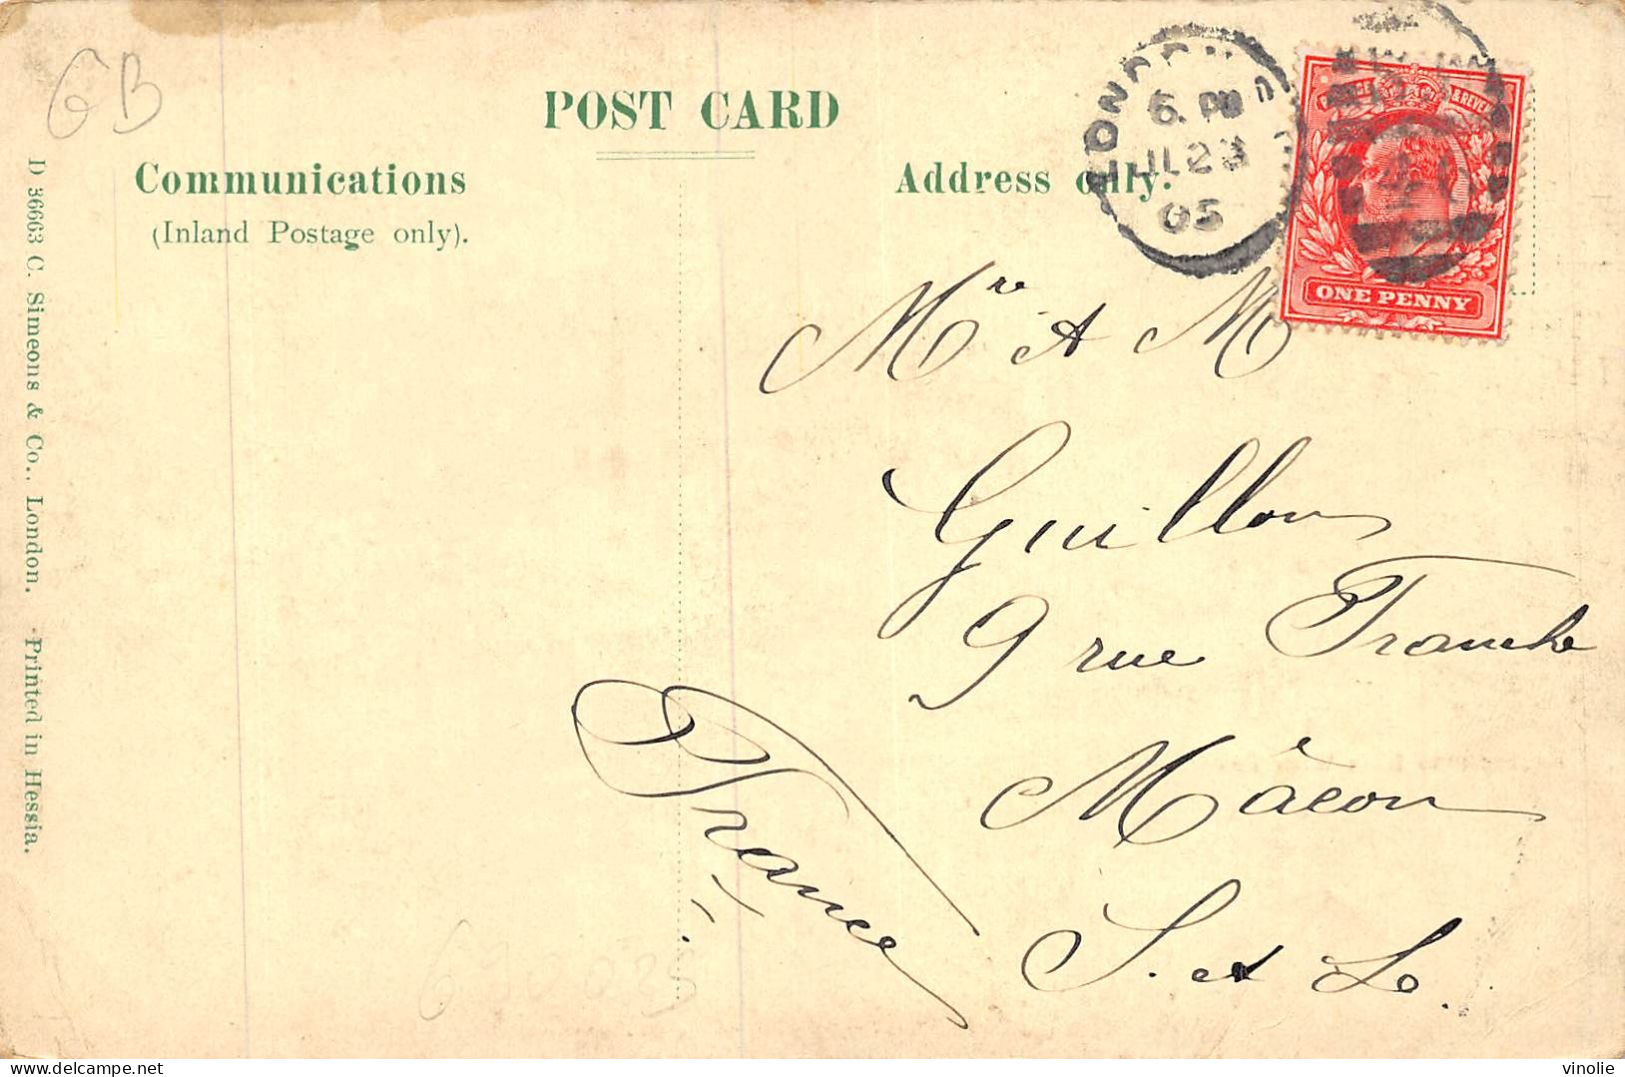 GB
POST CARD
Communications
(Inland Postage only).
Address only.
LONDON
6. PM
JL 23
05
ONE PENNY
Mr et M
Guillon
9 rue Franche
Mâcon
S. et L.
France
D 36663 C. Simeons & Co., London. Printed in Hessia.
630035
delcampe.net
vinolie